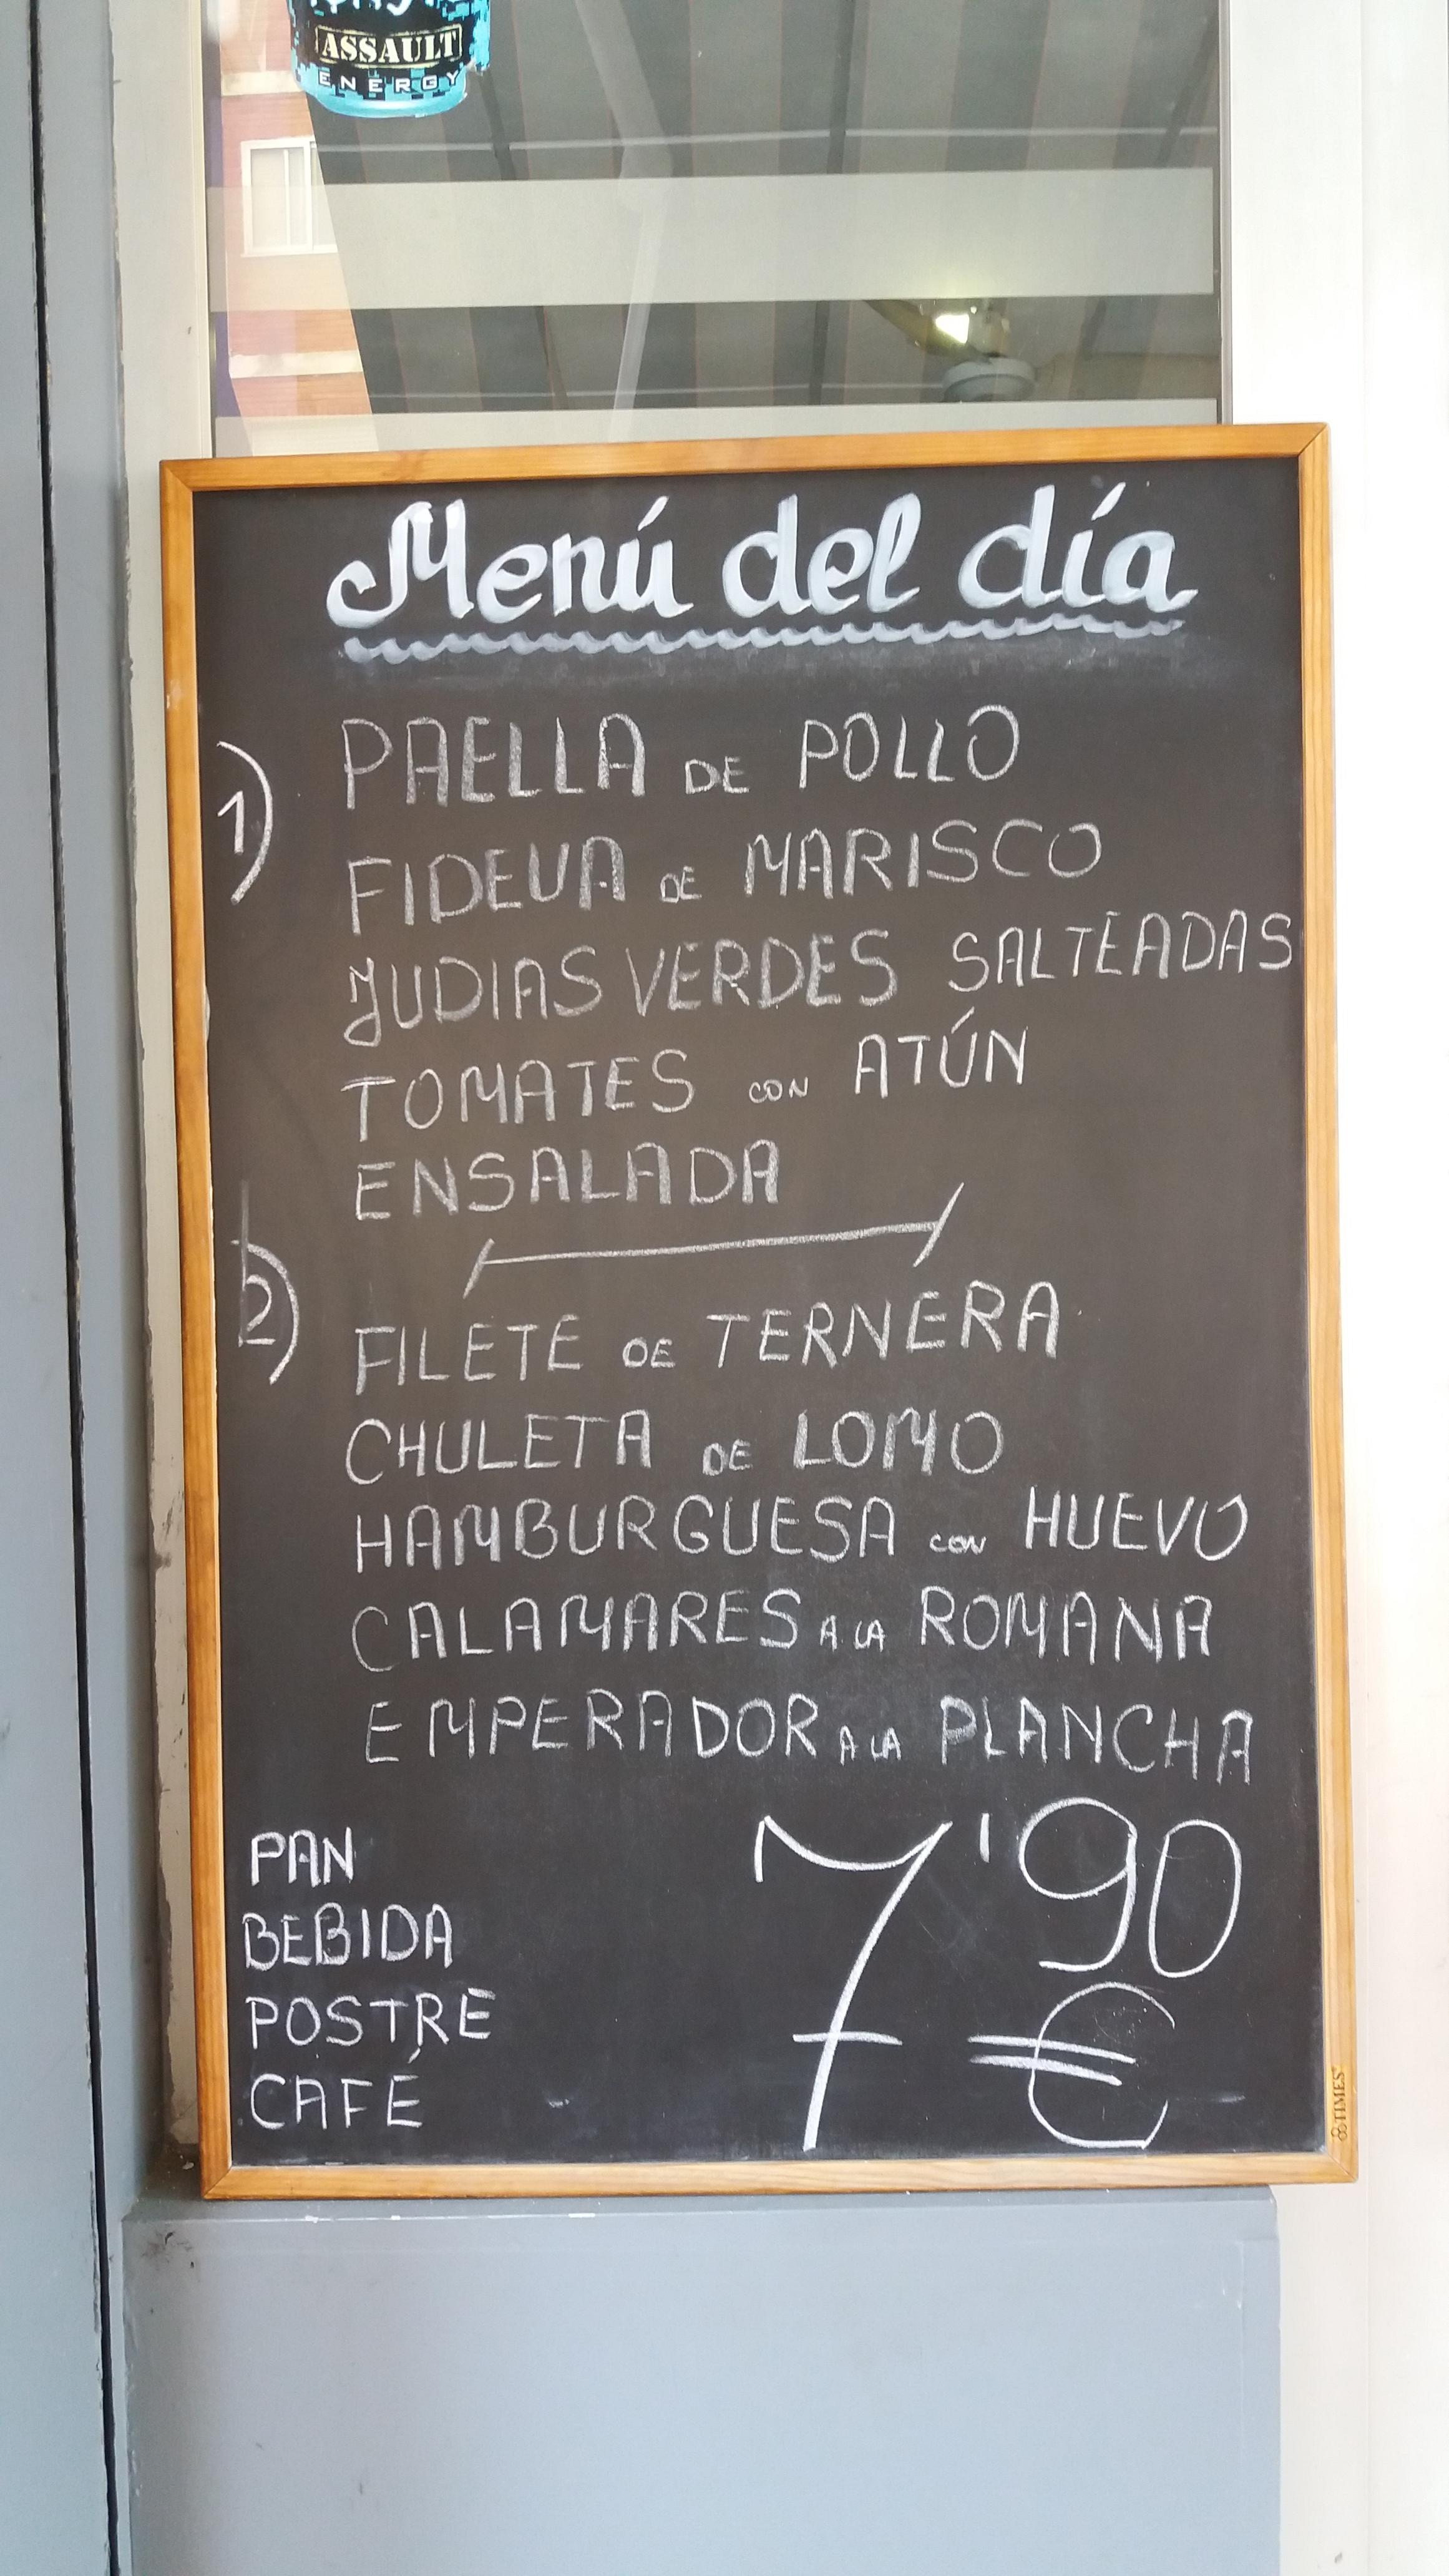 ASSAULT
ENERGY
Menú del día
1)
PAELLA DE POLLO
FIDEUA DE MARISCO
JUDIAS VERDES SALTEADAS
TOMATES CON ATÚN
ENSALADA
2)
FILETE DE TERNERA
CHULETA DE LOMO
HAMBURGUESA CON HUEVO
CALAMARES A LA ROMANA
EMPERADOR A LA PLANCHA
PAN
BEBIDA
POSTRE
CAFÉ
7'90
€
TIMES